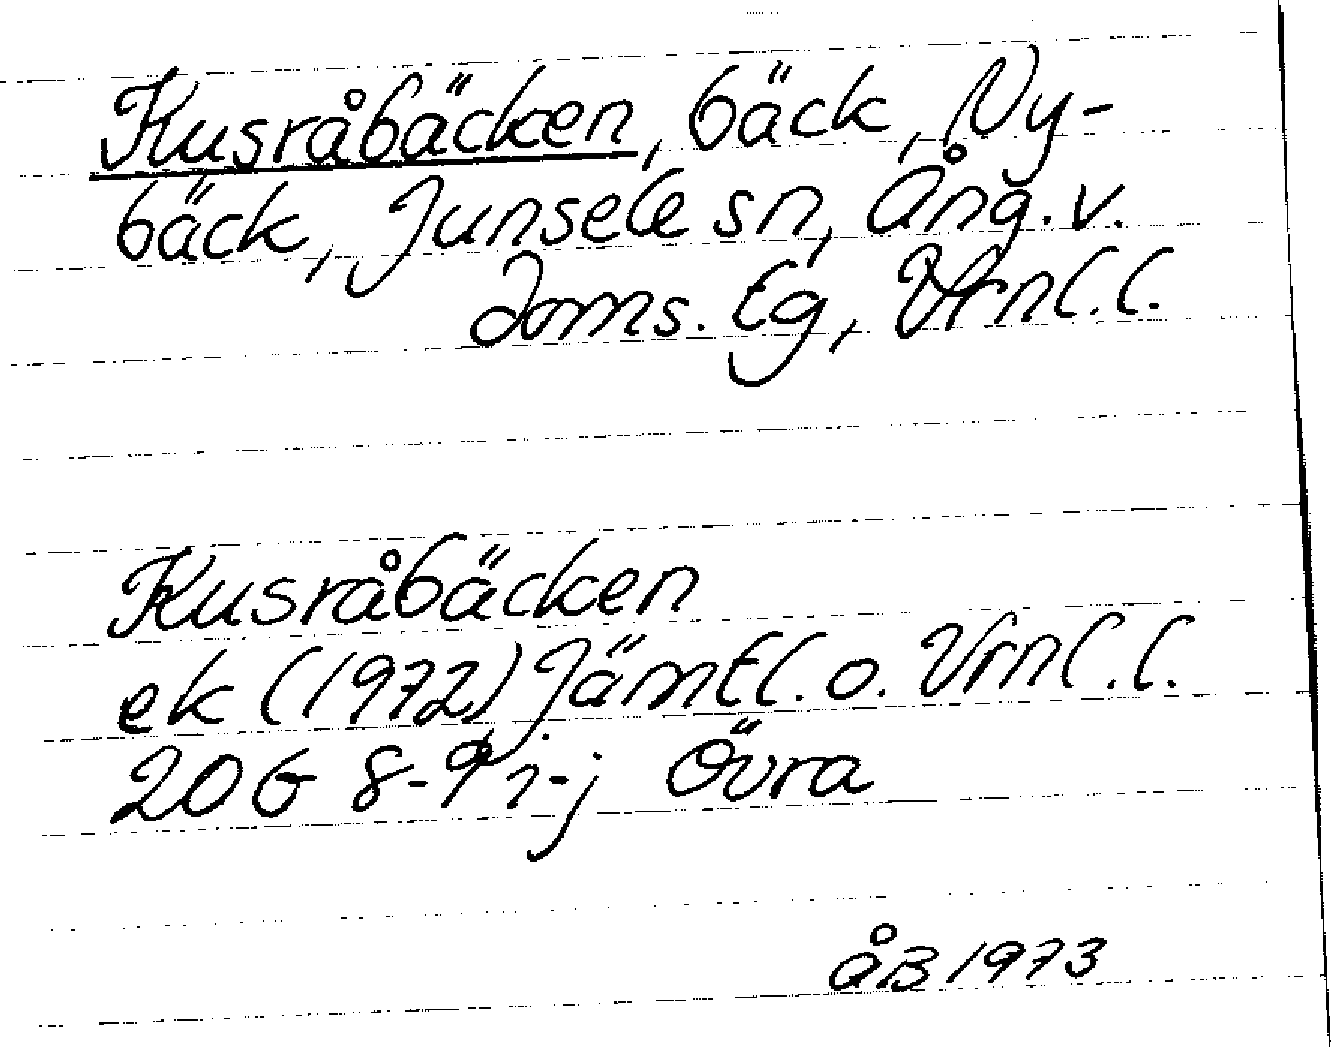 Kusråbäcken, bäck, Ny-
bäck, Junsele sn, Ång. v.
doms. tg, Vrnl. l.
Kusråbäcken
ek (1972) Jämtl. o. Vrnl. l.
20G 8-9 i-j Övra
ÅB 1973